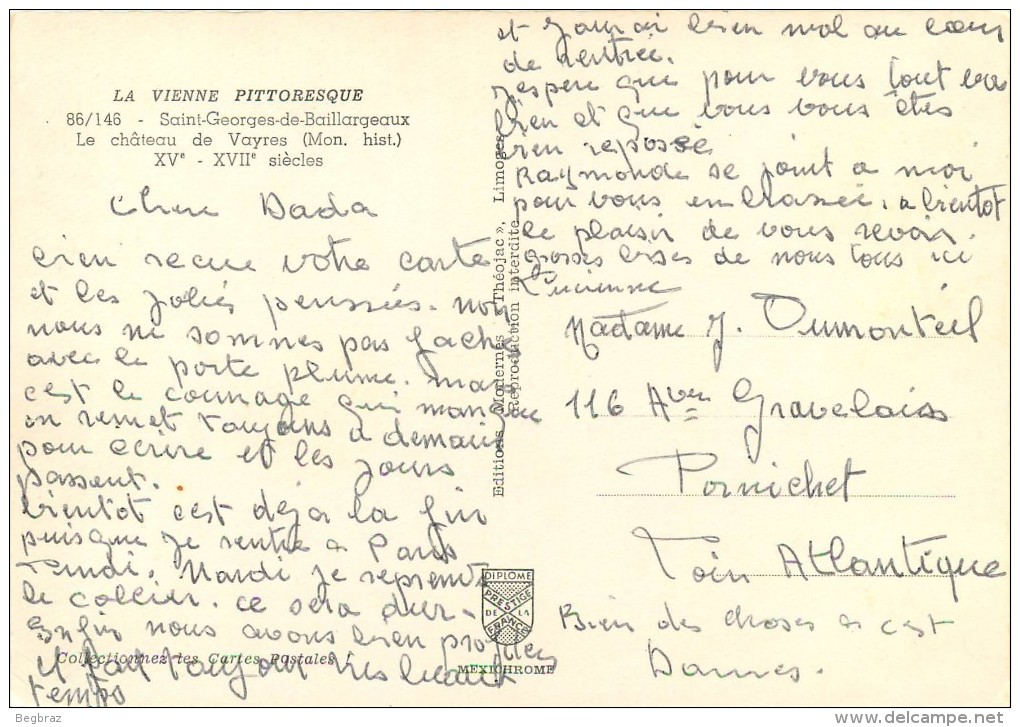 LA VIENNE PITTORESQUE
86/146 - Saint-Georges-de-Baillargeaux
Le château de Vayres (Mon. hist.)
XVe - XVIIe siècles
Chere Dada
bien recue votre carte
et les jolies pensées. non
nous ne sommes pas fachés
avec le porte plume. mais
c'est le courage qui manque
on remet toujours a demain
pour ecrire et les jours
passent.
bientot c'est deja la fin
puisque je rentre a Paris
Lundi. Mardi je reprends
le collier. ce sera dur.
Enfin nous avons bien profités
il fait toujours tres beau
temps
Collectionnez les Cartes Postales !
et j'aurai bien mal au coeur
de rentrée.
j'espere que pour vous tout va
bien et que vous vous êtes
bien reposée
Raymonde se joint a moi
pour vous embrassée. a bientot
le plaisir de vous revoir.
Grosses bises de nous tous ici
Lucienne
Editions Modernes « Théojac », Limoges
Reproduction interdite
Madame J. Dumonteil
116 Aven Gravelais
Pornichet
Loire Atlantique
Bien des choses a c'est
Dames.
DIPLOME
PRESTIGE
DE LA
FRANCE
MEXICHROME
Begbraz
www.delcampe.net